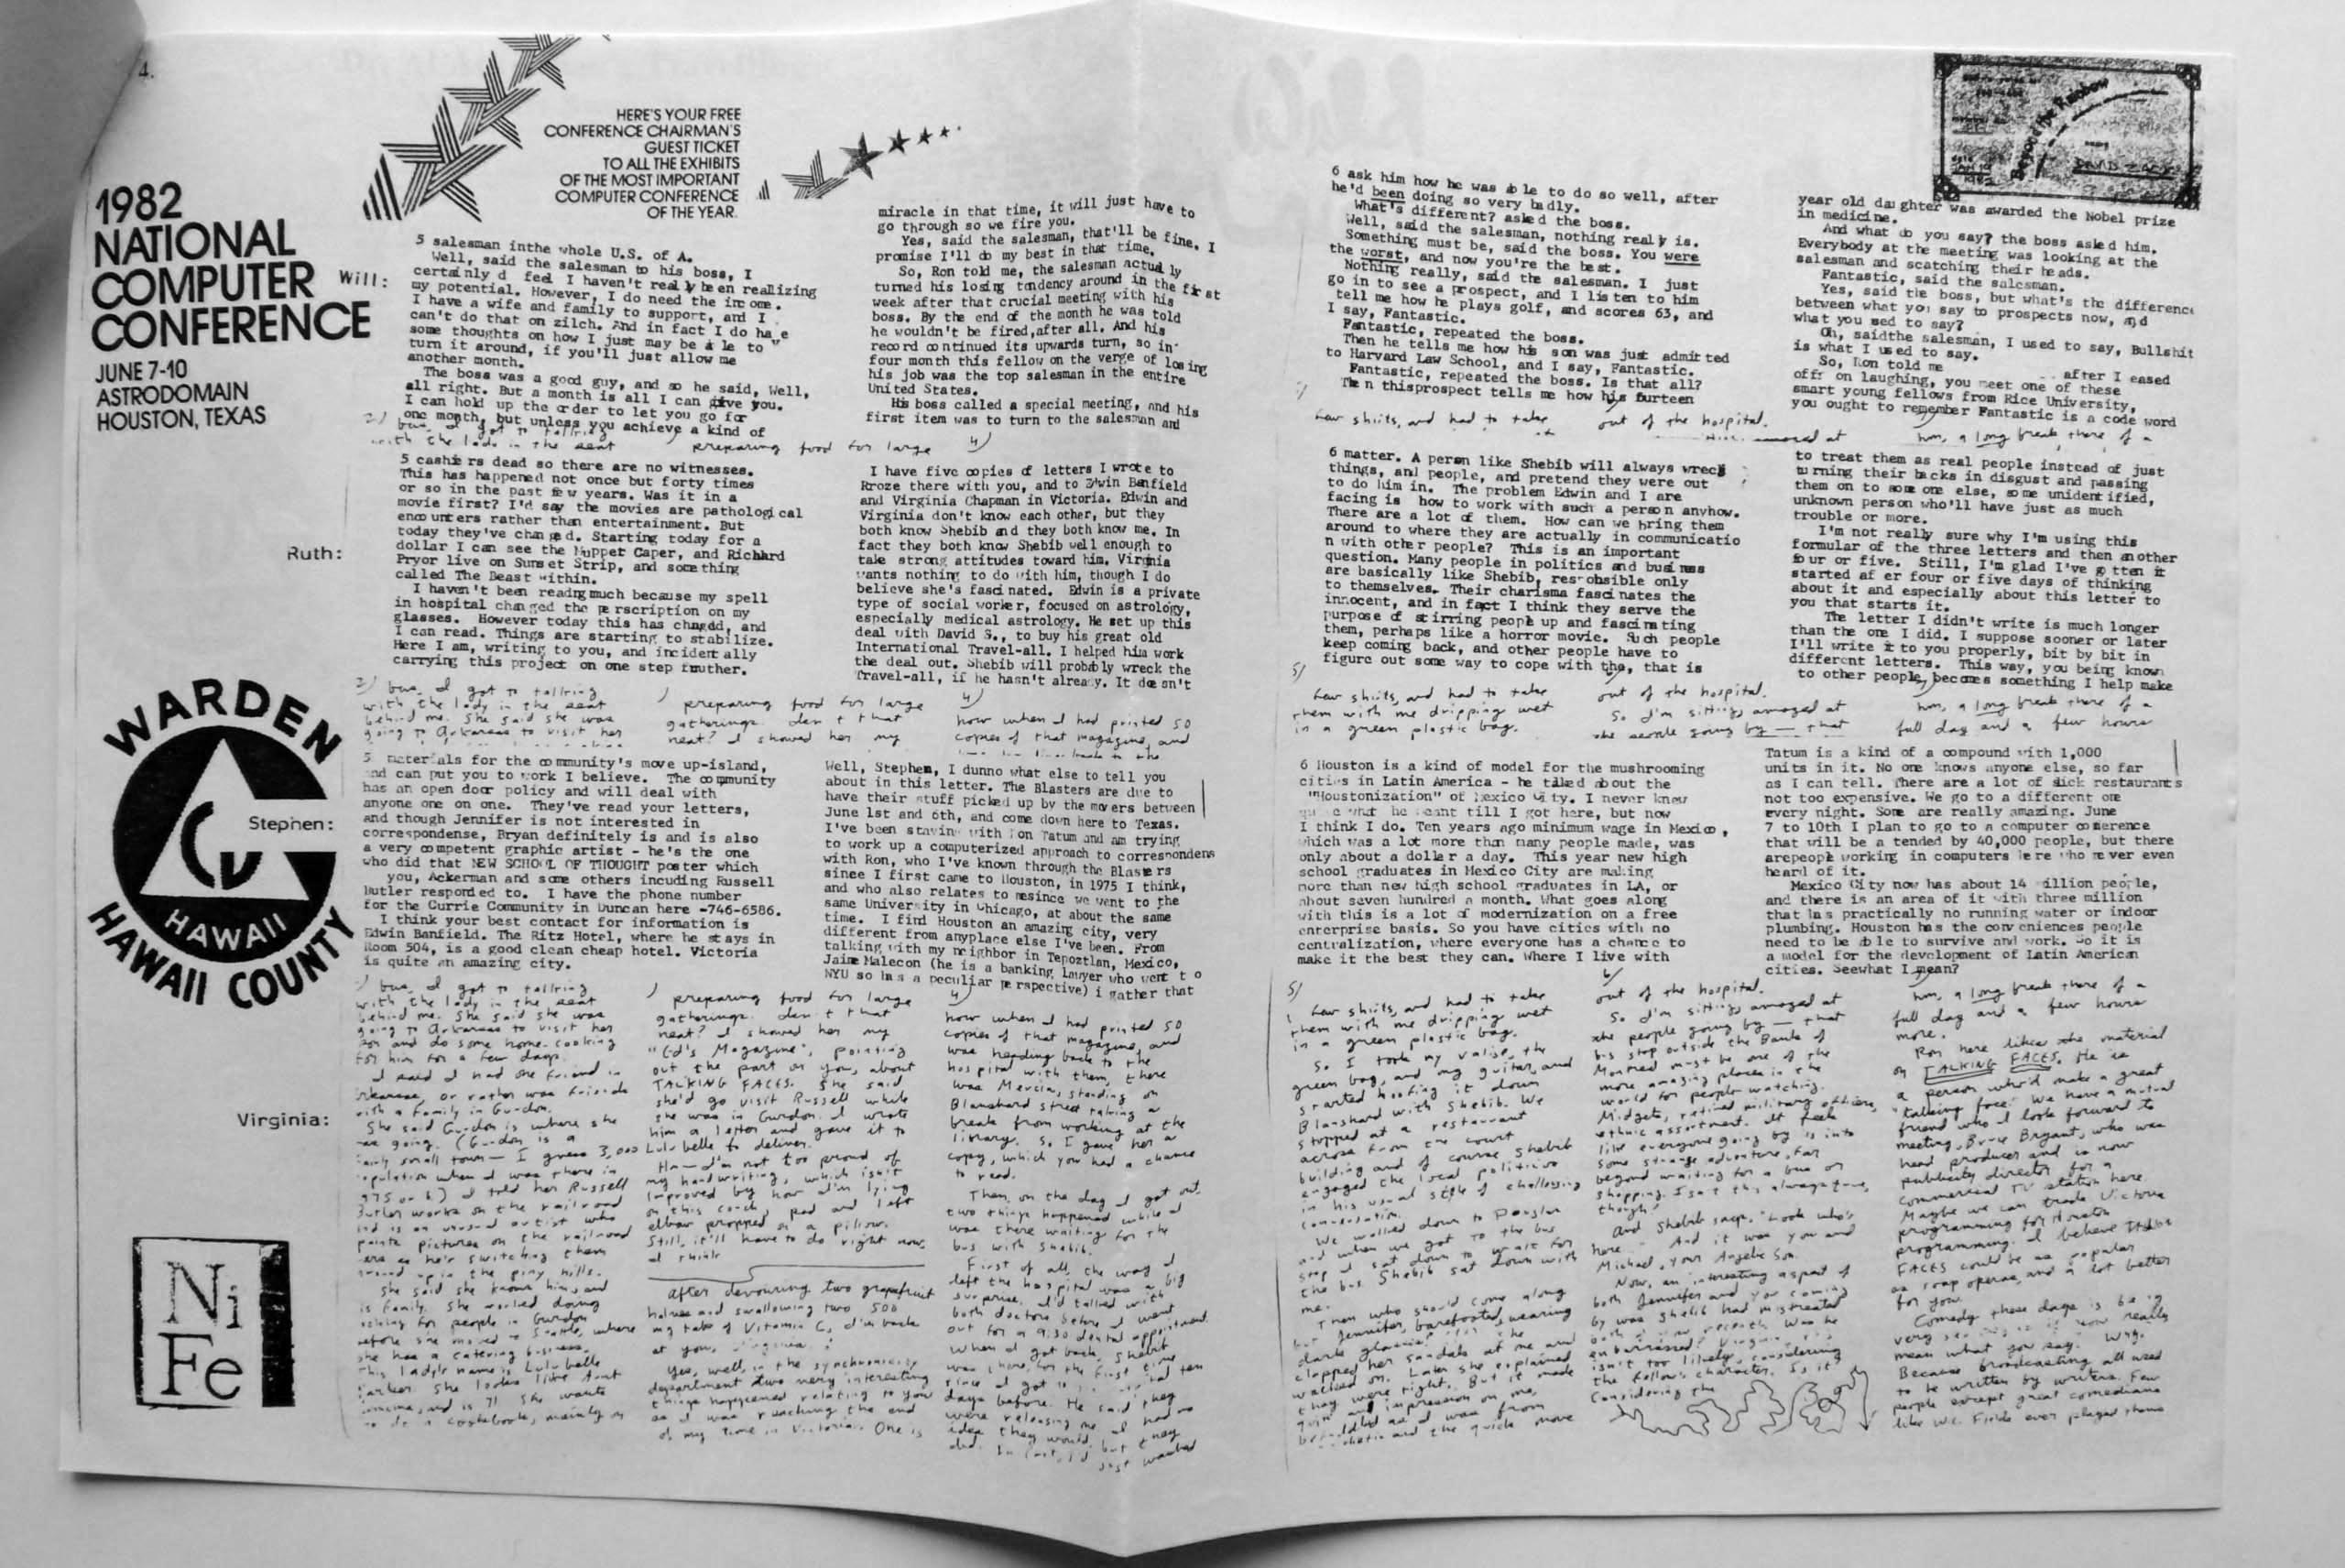 4.
1982
NATIONAL
COMPUTER
CONFERENCE
JUNE 7-10
ASTRODOMAIN
HOUSTON, TEXAS
HERE'S YOUR FREE
CONFERENCE CHAIRMAN'S
GUEST TICKET
TO ALL THE EXHIBITS
OF THE MOST IMPORTANT
COMPUTER CONFERENCE
OF THE YEAR.
Beyond the Rainbow
Will:
5 salesman inthe whole U.S. of A.
Well, said the salesman to his boss, I
certainly d feel I haven't really been realizing
my potential. However, I do need the income.
I have a wife and family to support, and I
can't do that on zilch. And in fact I do have
some thoughts on how I just may be able to
turn it around, if you'll just allow me
another month.
The boss was a good guy, and so he said, Well,
all right. But a month is all I can give you.
I can hold up the order to let you go for
one month, but unless you achieve a kind of
miracle in that time, it will just have to
go through so we fire you.
Yes, said the salesman, that'll be fine. I
promise I'll do my best in that time.
So, Ron told me, the salesman actually
turned his losing tendency around in the first
week after that crucial meeting with his
boss. By the end of the month he was told
he wouldn't be fired,after all. And his
record continued its upwards turn, so in
four month this fellow on the verge of losing
his job was the top salesman in the entire
United States.
His boss called a special meeting, and his
first item was to turn to the salesman and
6 ask him how he was able to do so well, after
he'd been doing so very badly.
What's different? asked the boss.
Well, said the salesman, nothing really is.
Something must be, said the boss. You were
the worst, and now you're the best.
Nothing really, said the salesman. I just
go in to see a prospect, and I listen to him
tell me how he plays golf, and scores 63, and
I say, Fantastic.
Fantastic, repeated the boss.
Then he tells me how his son was just admitted
to Harvard Law School, and I say, Fantastic.
Fantastic, repeated the boss. Is that all?
Then thisprospect tells me how his fourteen
year old daughter was awarded the Nobel prize
in medicine.
And what do you say? the boss asked him.
Everybody at the meeting was looking at the
salesman and scatching their heads.
Fantastic, said the salesman.
Yes, said the boss, but what's the difference
between what you say to prospects now, and
what you used to say?
Oh, saidthe salesman, I used to say, Bullshit
is what I used to say.
So, Ron told me after I eased
off on laughing, you meet one of these
smart young fellows from Rice University,
you ought to remember Fantastic is a code word
2) bus, I got to talking
with the lady in the seat
preparing food for large
4)
5)
few shirts, and had to take
out of the hospital.
amazed at
hm, a long break there of a
Ruth:
5 cashiers dead so there are no witnesses.
This has happened not once but forty times
or so in the past few years. Was it in a
movie first? I'd say the movies are pathological
encounters rather than entertainment. But
today they've changed. Starting today for a
dollar I can see the Muppet Caper, and Richard
Pryor live on Sunset Strip, and something
called The Beast Within.
I haven't been reading much because my spell
in hospital changed the perscription on my
glasses. However today this has chagdd, and
I can read. Things are starting to stabilize.
Here I am, writing to you, and incidentally
carrying this project on one step fruther.
I have five copies of letters I wrote to
Rroze there with you, and to Edwin Banfield
and Virginia Chapman in Victoria. Edwin and
Virginia don't know each other, but they
both know Shebib and they both know me. In
fact they both know Shebib well enough to
take strong attitudes toward him. Virginia
wants nothing to do with him, though I do
believe she's fascinated. Edwin is a private
type of social worker, focused on astrology,
especially medical astrology. He set up this
deal with David S., to buy his great old
International Travel-all. I helped him work
the deal out. Shebib will probably wreck the
Travel-all, if he hasn't already. It doesn't
6 matter. A person like Shebib will always wreck
things, and people, and pretend they were out
to do him in. The problem Edwin and I are
facing is how to work with such a person anyhow.
There are a lot of them. How can we bring them
around to where they are actually in communicatio
n with other people? This is an important
question. Many people in politics and business
are basically like Shebib, responsible only
to themselves. Their charisma fascinates the
innocent, and in fact I think they serve the
purpose of stirring people up and fascinating
them, perhaps like a horror movie. Such people
keep coming back, and other people have to
figure out some way to cope with the, that is
to treat them as real people instead of just
turning their backs in disgust and passing
them on to someone else, some unidentified,
unknown person who'll have just as much
trouble or more.
I'm not really sure why I'm using this
formular of the three letters and then another
four or five. Still, I'm glad I've gotten it
started after four or five days of thinking
about it and especially about this letter to
you that starts it.
The letter I didn't write is much longer
than the one I did. I suppose sooner or later
I'll write it to you properly, bit by bit in
different letters. This way, you being known
to other people, becomes something I help make
2) bus, I got to talking
with the lady in the seat
behind me. She said she was
going to Arkansas to visit her
preparing food for large
gatherings. Isn't that
neat? I showed her my
4)
how when I had printed 50
copies of that magazine, and
5)
few shirts, and had to take
them with me dripping wet
in a green plastic bag.
out of the hospital.
So I'm sitting amazed at
the people going by — that
hm, a long break there of a
full day and a few hours
WARDEN
HAWAII
HAWAII COUNTY
Stephen:
5 materials for the community's move up-island,
and can put you to work I believe. The community
has an open door policy and will deal with
anyone one on one. They've read your letters,
and though Jennifer is not interested in
correspondense, Bryan definitely is and is also
a very competent graphic artist - he's the one
who did that NEW SCHOOL OF THOUGHT poster which
you, Ackerman and some others incuding Russell
Butler responded to. I have the phone number
for the Currie Community in Duncan here -746-6586.
I think your best contact for information is
Edwin Banfield. The Ritz Hotel, where he stays in
Room 504, is a good clean cheap hotel. Victoria
is quite an amazing city.
Well, Stephen, I dunno what else to tell you
about in this letter. The Blasters are due to
have their stuff picked up by the movers between
June 1st and 6th, and come down here to Texas.
I've been staying with Ron Tatum and am trying
to work up a computerized approach to correspondens
with Ron, who I've known through the Blasters
sinee I first came to Houston, in 1975 I think,
and who also relates to mesince we went to the
same University in Chicago, at about the same
time. I find Houston an amazing city, very
different from anyplace else I've been. From
talking with my neighbor in Tepoztlan, Mexico,
Jaime Malecon (he is a banking lawyer who went to
NYU so has a peculiar perspective) i gather that
6 Houston is a kind of model for the mushrooming
cities in Latin America - he talked about the
"Houstonization" of Mexico City. I never knew
quite what he meant till I got here, but now
I think I do. Ten years ago minimum wage in Mexico,
which was a lot more than many people made, was
only about a dollar a day. This year new high
school graduates in Mexico City are making
more than new high school graduates in LA, or
about seven hundred a month. What goes along
with this is a lot of modernization on a free
enterprise basis. So you have cities with no
centralization, where everyone has a chance to
make it the best they can. Where I live with
Tatum is a kind of a compound with 1,000
units in it. No one knows anyone else, so far
as I can tell. There are a lot of slick restaurants
not too expensive. We go to a different one
every night. Some are really amazing. June
7 to 10th I plan to go to a computer conference
that will be attended by 40,000 people, but there
arepeople working in computers here who never even
heard of it.
Mexico City now has about 14 million people,
and there is an area of it with three million
that has practically no running water or indoor
plumbing. Houston has the conveniences people
need to be able to survive and work. So it is
a model for the development of Latin American
cities. Seewhat I mean?
Virginia:
2) bus, I got to talking
with the lady in the seat
behind me. She said she was
going to Arkansas to visit her
son and do some home-cooking
for him for a few days.
I said I had one friend in
Arkansas, or rather was friends
with a family in Gurdon.
She said Gurdon is where she
was going. (Gurdon is a
fairly small town — I guess 3,000
population when I was there in
1975 or 6) I told her Russell
Butler works on the railroad
and is an unusual artist who
paints pictures on the railroad
cars as he's switching them
around up in the piny hills.
She said she knows him and
his family. She worked doing
for people in Gurdon
before she moved to Seattle, where
she has a catering business.
This lady's name is Lulubelle
Parker. She looks like Aunt
and is 71. She wants
to do a cookbook, mainly on
preparing food for large
gatherings. Isn't that
neat? I showed her my
"Ed's Magazine", pointing
out the part on you, about
TALKING FACES. She said
she'd go visit Russell while
she was in Gurdon. I wrote
him a letter and gave it to
Lulubelle to deliver.
Hm—I'm not too proud of
my handwriting, which isn't
improved by how I'm lying
on this couch, pad and left
elbow propped on a pillow.
Still, it'll have to do right now,
I think
After devouring two grapefruit
halves and swallowing two 500
mg tabs of Vitamin C, I'm back
at you, Virginia!
Yes, well, in the synchronicity
department two very interesting
things happened relating to you
as I was reaching the end
of my time in Victoria. One is
4)
how when I had printed 50
copies of that magazine, and
was heading back to the
hospital with them, there
was Mercia, standing on
Blanshard street taking a
break from working at the
library. So I gave her a
copy, which you had a chance
to read.
Then, on the day I got out,
two things happened while I
was there waiting for the
bus with Shebib.
First of all, the way I
left the hospital was a big
surprise. I'd talked with
both doctors before I went
out for a 9:30 dental appointment.
When I got back, Shebib
was there for the first time
since I got to hospital ten
days before. He said they
were releasing me. I had no
idea they would, but they
did. In fact, I'd just washed
5)
few shirts, and had to take
them with me dripping wet
in a green plastic bag.
So I took my valise, the
green bag, and my guitar, and
started hoofing it down
Blanshard with Shebib. We
stopped at a restaurant
across from the court
building and of course Shebib
engaged the local politicos
in his usual style of challenging
conversation.
We walked down to Douglas
and when we got to the bus
stop I sat down to wait for
the bus. Shebib sat down with
me.
Then who should come along
but Jennifer, barefooted, wearing
dark glasses! She
clapped her sandals at me and
walked on. Later she explained
they were tight. But it made
quite an impression on me,
as I was from
and the quick move
6/
out of the hospital.
So I'm sitting amazed at
the people going by — that
bus stop outside the Bank of
Montreal must be one of the
more amazing places in the
world for people-watching.
Midgets, retired military officers,
ethnic assortment. It feels
like everyone going by is into
some strange adventure, far
beyond waiting for a bus or
shopping. Isn't this always true,
though?
And Shebib says, "Look who's
here." And it was you and
Michael, your Angelic Son.
Now, an interesting aspect of
both Jennifer and you coming
by was Shebib had mistreated
both of you. Was he
embarrassed? Virginia, this
isn't too likely, considering
the fellow's character. Is it?
Considering the
hm, a long break there of a
full day and a few hours
more.
Ron here likes the material
on TALKING FACES. He is
a person who'd make a great
"talking face." We have a mutual
friend who I look forward to
meeting, Bruce Bryant, who was
head producer and is now
publicity director for a
commercial TV station here.
Maybe we can trade Victoria
programming for Houston
programming. I believe TALKING
FACES could be as popular
as soap operas, and a lot better
for you.
Comedy these days is being
very serious as if now really
mean what you say. Why.
Because broadcasting all used
to be written by writers. Few
people except great comedians
like W.C. Fields ever played those
Ni
Fe